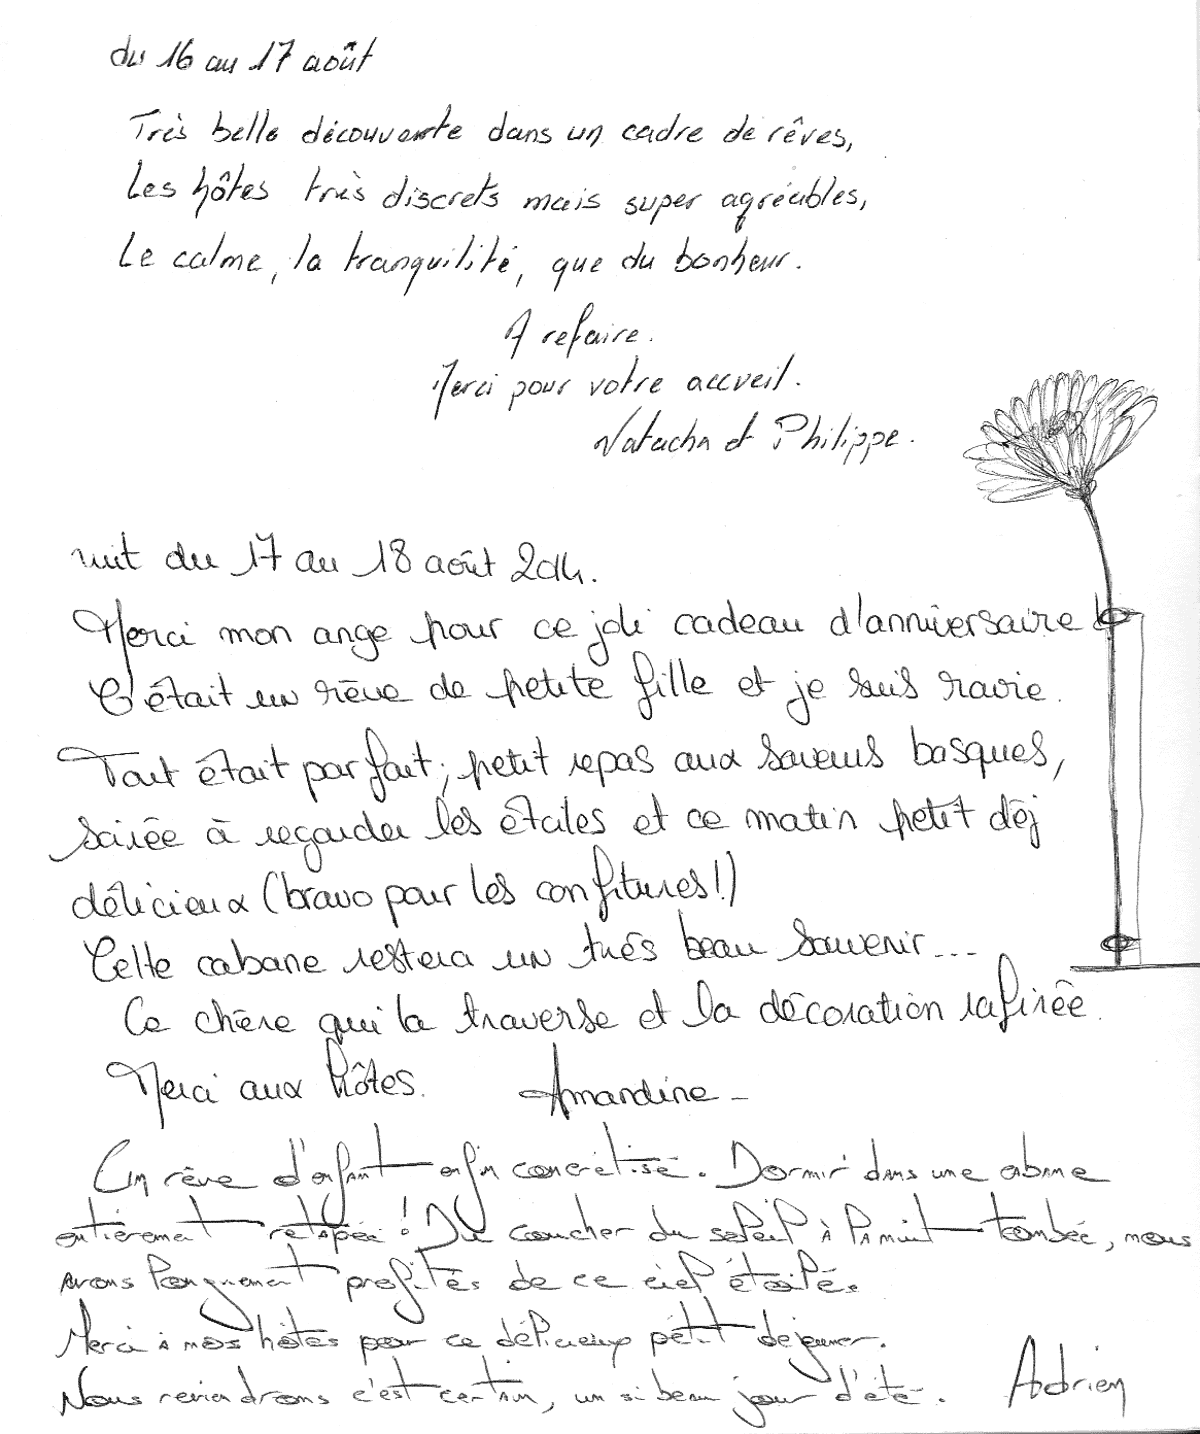 du 16 au 17 août
Très belle découverte dans un cadre de rêves,
Les hôtes très discrets mais super agréables,
Le calme, la tranquilité, que du bonheur.
A refaire.
Merci pour votre accueil.
Natacha et Philippe.
nuit du 17 au 18 août 2014.
Merci mon ange pour ce joli cadeau d'anniversaire !
C'était un rêve de petite fille et je suis ravie.
Tout était parfait; petit repas aux saveurs basques,
soirée à regarder les étoiles et ce matin petit dèj
délicieux (bravo pour les confitures!)
Cette cabane restera un très beau souvenir...
Ce chêne qui la traverse et la décoration rafinée.
Merci aux hôtes. Amandine -
Un rêve d'enfant enfin concrétisé. Dormir dans une cabane
entièrement retapée! Du coucher du soleil à la nuit tombée, nous
avons longuement profités de ce ciel étoilé.
Merci à nos hôtes pour ce délicieux petit dejeuner.
Nous reviendrons c'est certain, un si beau jour d'été. Adrien